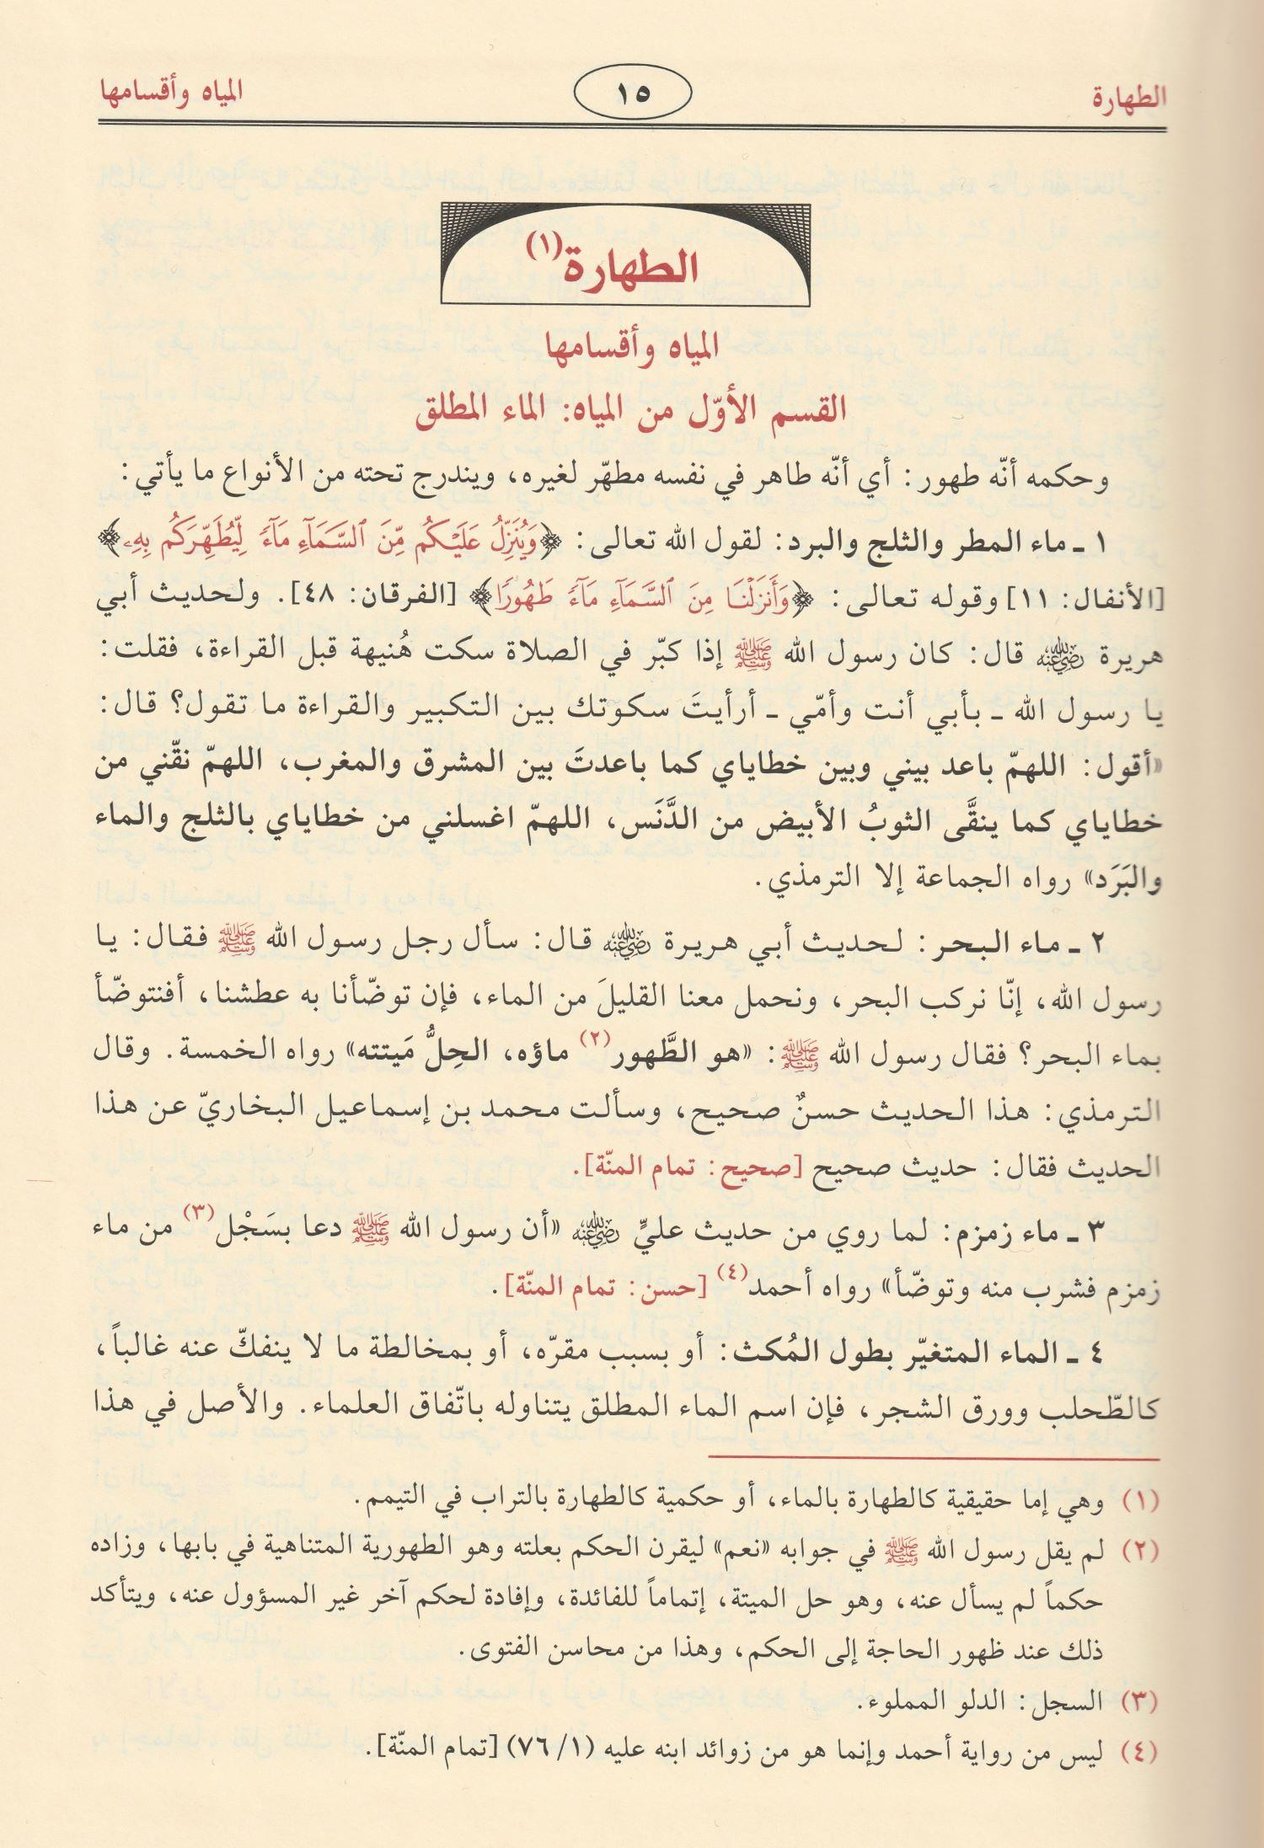 الطهارة
١٥
المياه وأقسامها
الطهارة(١)
المياه وأقسامها
القسم الأوّل من المياه: الماء المطلق
وحكمه أنّه طهور: أي أنّه طاهر في نفسه مطهّر لغيره، ويندرج تحته من الأنواع ما يأتي:
١ ـ ماء المطر والثلج والبرد: لقول الله تعالى: ﴿وَيُنَزِّلُ عَلَيْكُم مِّنَ ٱلسَّمَآءِ مَآءً لِّيُطَهِّرَكُم بِهِۦ﴾
[الأنفال: ١١] وقوله تعالى: ﴿وَأَنزَلْنَا مِنَ ٱلسَّمَآءِ مَآءً طَهُورًا﴾ [الفرقان: ٤٨]. ولحديث أبي
هريرة رضي الله عنه قال: كان رسول الله ﷺ إذا كبّر في الصلاة سكت هُنيهة قبل القراءة، فقلت:
يا رسول الله ـ بأبي أنت وأمّي ـ أرأيتَ سكوتك بين التكبير والقراءة ما تقول؟ قال:
«أقول: اللهمّ باعد بيني وبين خطاياي كما باعدتَ بين المشرق والمغرب، اللهمّ نقّني من
خطاياي كما ينقَّى الثوبُ الأبيض من الدَّنَس، اللهمّ اغسلني من خطاياي بالثلج والماء
والبَرَد» رواه الجماعة إلا الترمذي.
٢ ـ ماء البحر: لحديث أبي هريرة رضي الله عنه قال: سأل رجل رسول الله ﷺ فقال: يا
رسول الله، إنّا نركب البحر، ونحمل معنا القليلَ من الماء، فإن توضّأنا به عطشنا، أفنتوضّأ
بماء البحر؟ فقال رسول الله ﷺ: «هو الطَّهور(٢) ماؤه، الحِلُّ مَيتته» رواه الخمسة. وقال
الترمذي: هذا الحديث حسنٌ صحيح، وسألت محمد بن إسماعيل البخاريّ عن هذا
الحديث فقال: حديث صحيح [صحيح: تمام المنّة].
٣ ـ ماء زمزم: لما روي من حديث عليٍّ رضي الله عنه «أن رسول الله ﷺ دعا بسَجْل(٣) من ماء
زمزم فشرب منه وتوضّأ» رواه أحمد(٤) [حسن: تمام المنّة].
٤ ـ الماء المتغيّر بطول المُكث: أو بسبب مقرّه، أو بمخالطة ما لا ينفكّ عنه غالباً،
كالطّحلب وورق الشجر، فإن اسم الماء المطلق يتناوله باتّفاق العلماء. والأصل في هذا
(١) وهي إما حقيقية كالطهارة بالماء، أو حكمية كالطهارة بالتراب في التيمم.
(٢) لم يقل رسول الله ﷺ في جوابه «نعم» ليقرن الحكم بعلته وهو الطهورية المتناهية في بابها، وزاده
حكماً لم يسأل عنه، وهو حل الميتة، إتماماً للفائدة، وإفادة لحكم آخر غير المسؤول عنه، ويتأكد
ذلك عند ظهور الحاجة إلى الحكم، وهذا من محاسن الفتوى.
(٣) السجل: الدلو المملوء.
(٤) ليس من رواية أحمد وإنما هو من زوائد ابنه عليه (٧٦/١) [تمام المنّة].